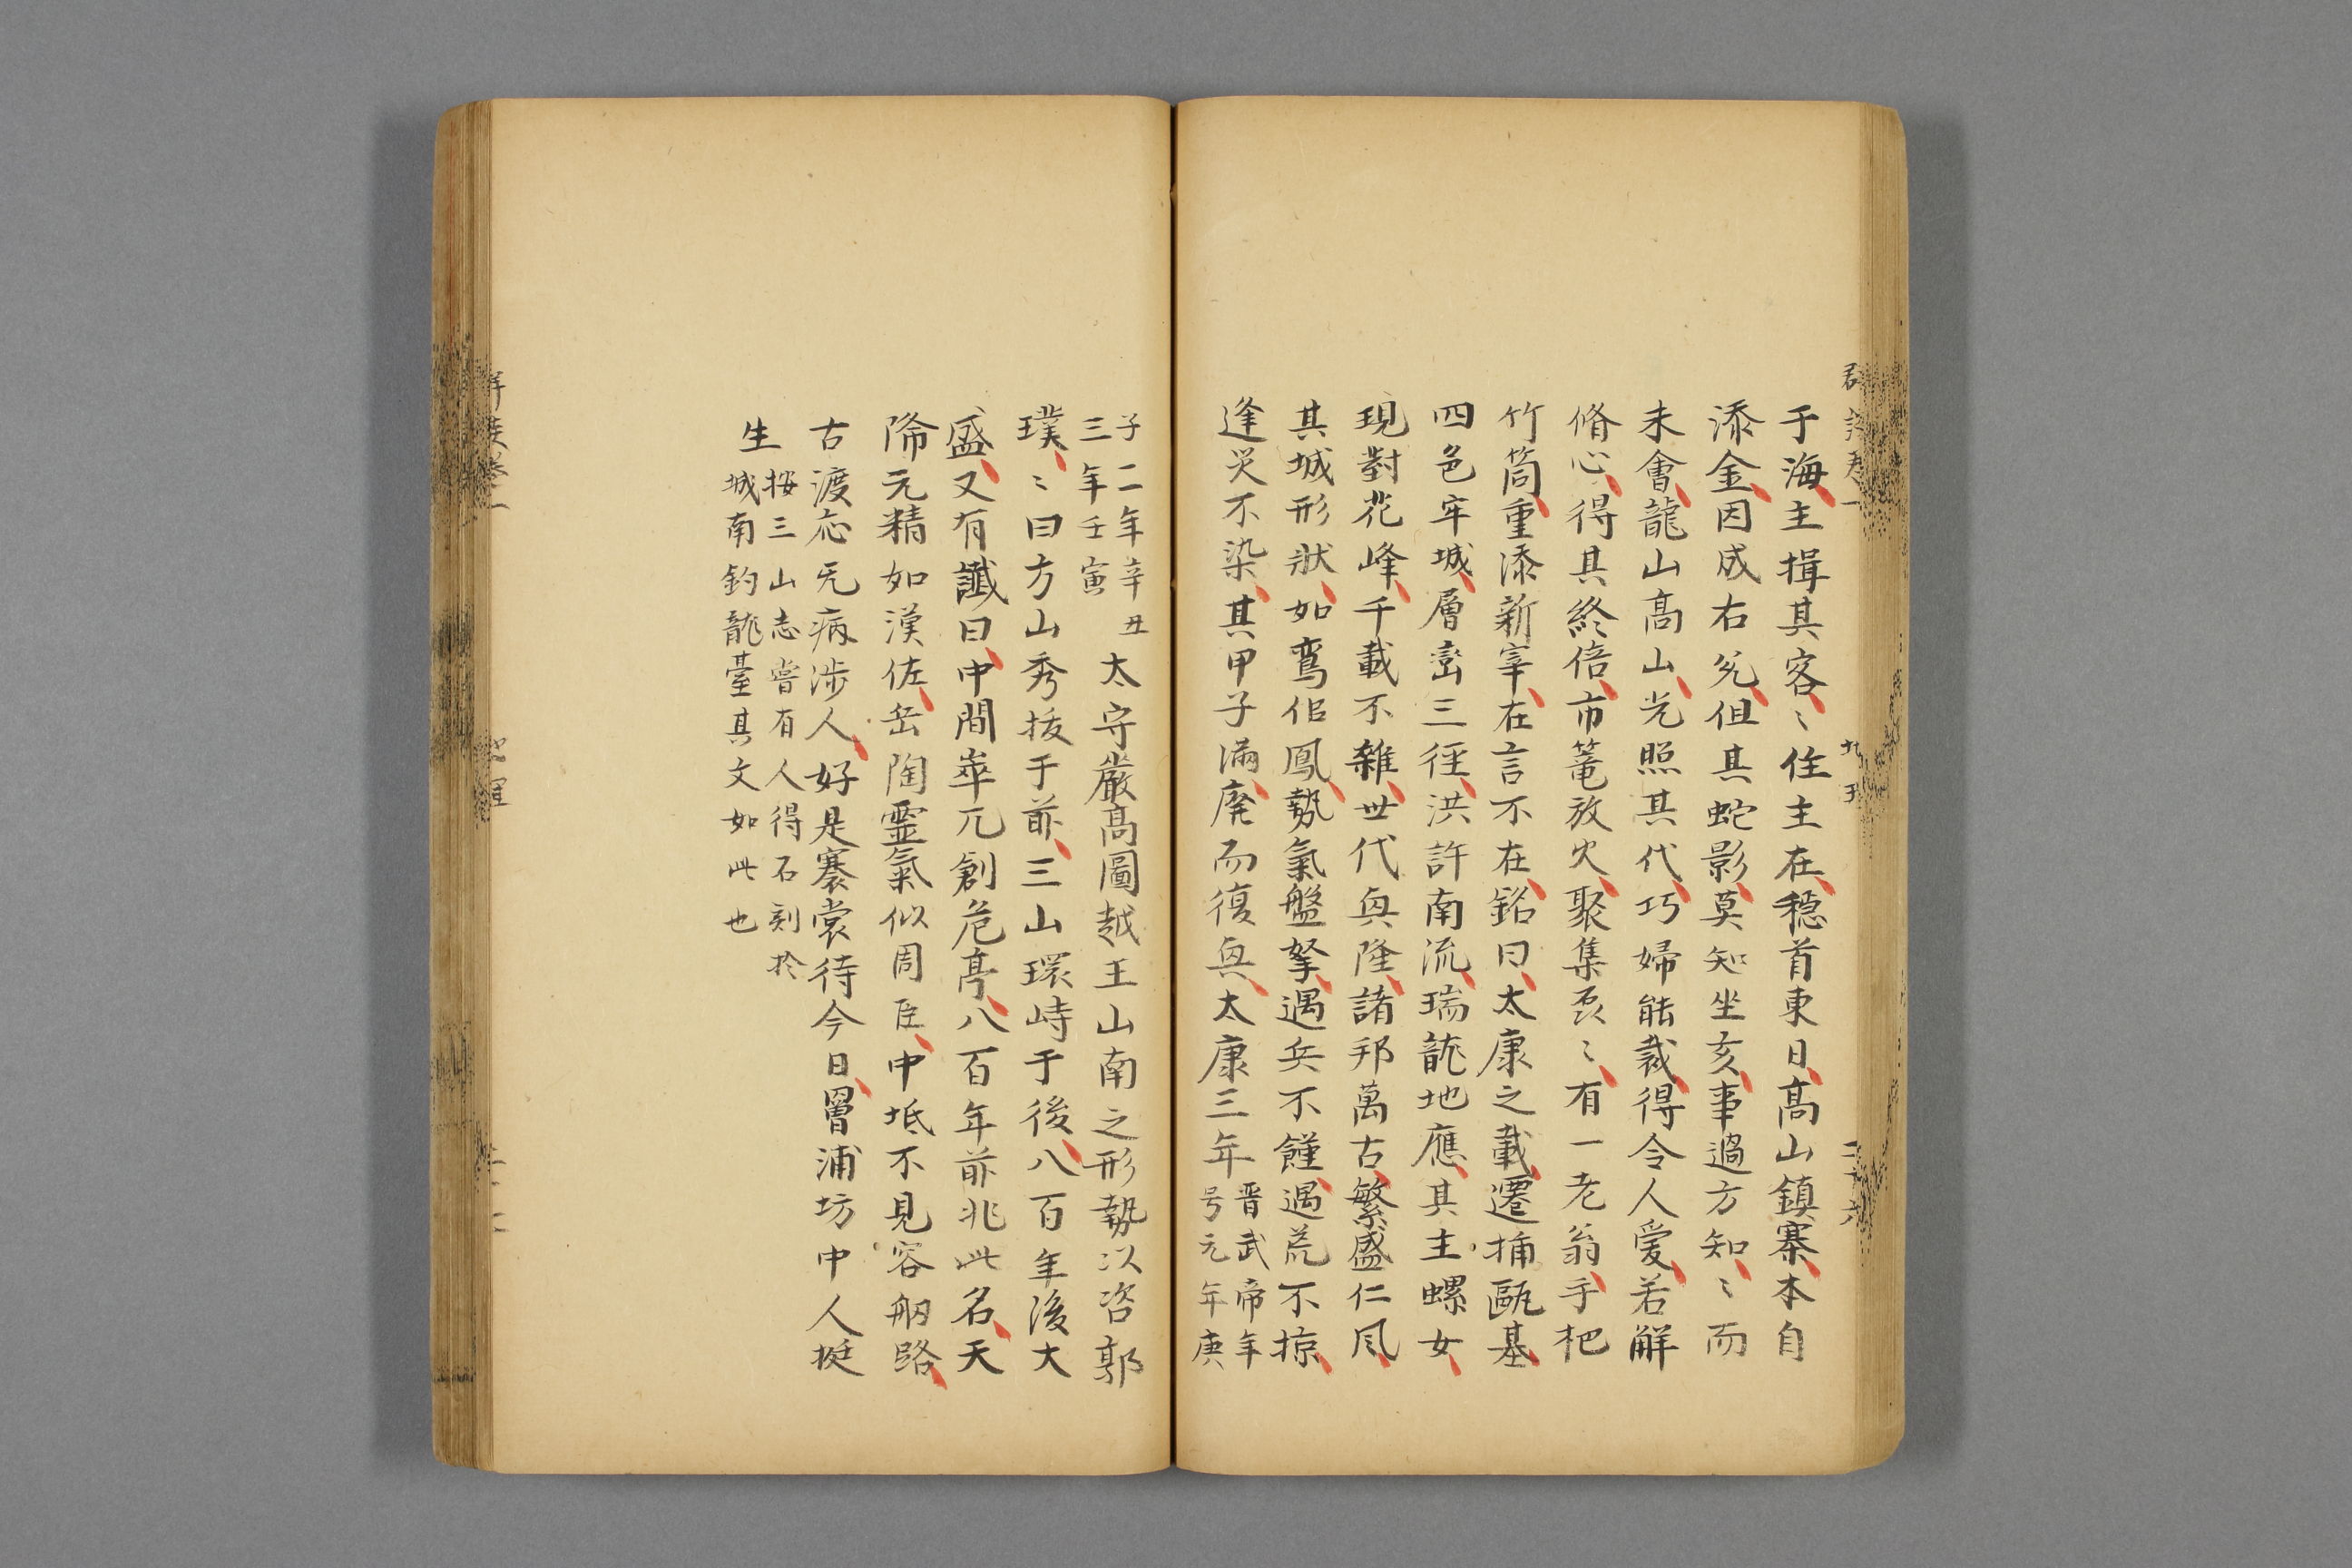 于海主揖其客〻住主在穏首東日高山鎮寨本自
添金因成右兊但其蛇影莫知坐亥事過方知〻而
未會龍山高山光照其代巧婦能裁得令人爱若解
脩心得其終倍市篭放火聚集忢〻有一老翁手杷
竹筒重添新宰在言不在銘曰太康之載遷插甌基
四色牢城層巒三徑洪許南流瑞龍地應其主螺女
現對花峰千載不雜世代興隆諸邦萬古繁盛仁風
其城形狀如鸞佀鳳勢氣盤拏遇兵不饉遇荒不掠
逢災不染其甲子滿廃而復興太康三年晋武帝年
号元年庚
子二年辛丑
三年壬寅
太守嚴高圖越王山南之形勢以咨郭
璞〻曰方山秀拔于前三山環峙于後八百年後大
盛又有讖曰中間華兀創危亭八百年前兆此名天
降元精如漢佐岳陶靈氣似周臣中坻不見容舠路
古渡応旡病渉人好是褰裳待今日曽浦坊中人挺
生
按三山志嘗有人得石刻於
城南釣龍臺其文如此也